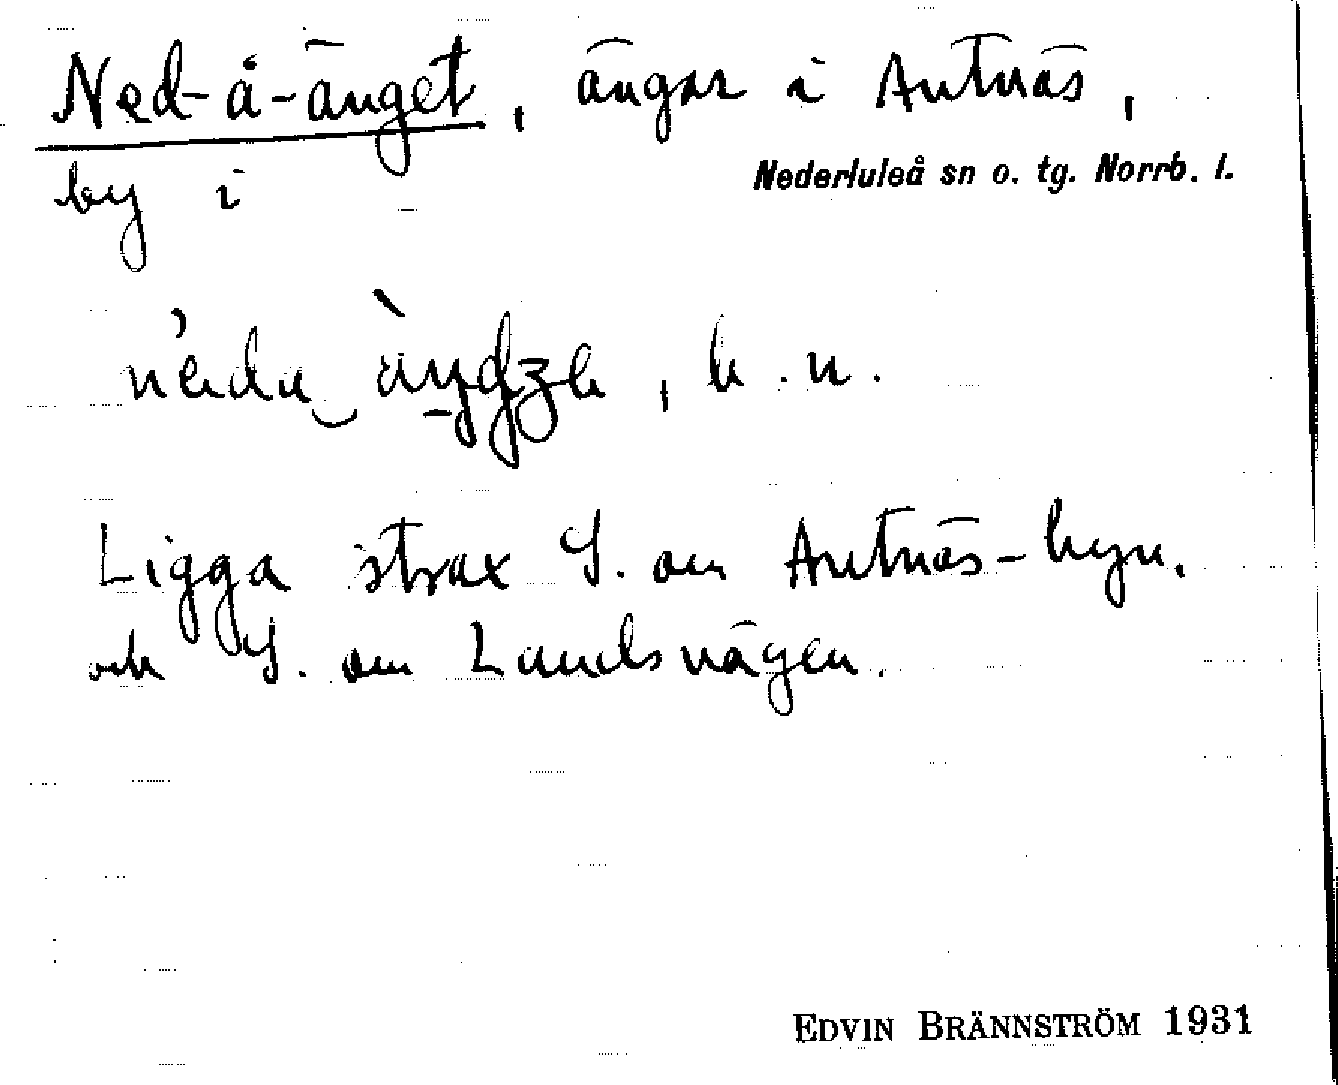 Ned-å-änget, ängar i Antnäs,
by i Nederluleå sn o. tg. Norrb. l.
b. n.
Ligga strax S. om Antnäs-byn,
och S. om Landsvägen.
EDVIN BRÄNNSTRÖM 1931